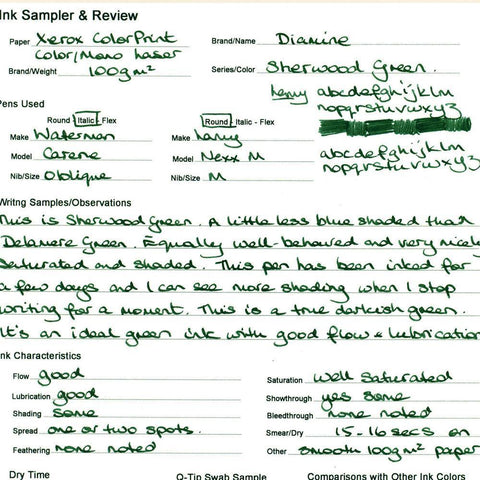 Ink Sampler & Review
Paper Xerox ColorPrint Brand/Name Diamine
Color/Mono Laser
Brand/Weight 100gm² Series/Color Sherwood Green.
Lamy abcdefghijklm
nopqrstuvwxyz
Pens Used
Round Italic - Flex Round Italic - Flex
Make Waterman Make Lamy
abcdefghijklm
Model Carene Model Nexx M
nopqrstuvwxyz
Nib/Size Oblique Nib/Size M
Writng Samples/Observations
This is Sherwood Green. A little less blue shaded that
Delamere Green. Equally well-behaved and very nicely
saturated and shaded. This pen has been inked for
a few days and I can see more shading when I stop
writing for a moment. This is a true darkish green.
It's an ideal green ink with good flow & lubrication
Ink Characteristics
Flow good Saturation well saturated
Lubrication good Showthrough yes some
Shading some Bleedthrough none noted
Spread one or two spots. Smear/Dry 15-16 secs on
Feathering none noted Other smooth 100gm² paper
Dry Time Q-Tip Swab Sample Comparisons with Other Ink Colors